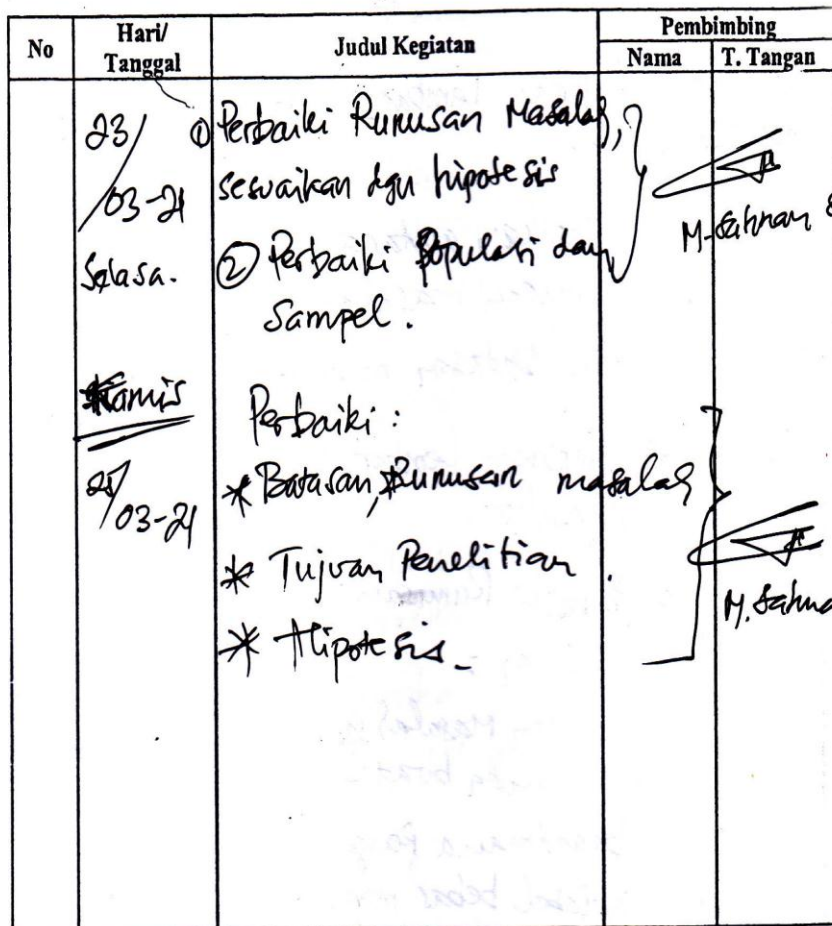 No
Hari/
Tanggal
Judul Kegiatan
Pembimbing
Nama
T. Tangan
23/
03-21
Selasa.
① Perbaiki Rumusan Masalah,
sesuaikan dgn hipotesis
② Perbaiki Populasi dan
Sampel.
M. Sahnan
Kamis
25/
03-21
Perbaiki :
* Batasan, Rumusan masalah
* Tujuan Penelitian.
* Hipotesis